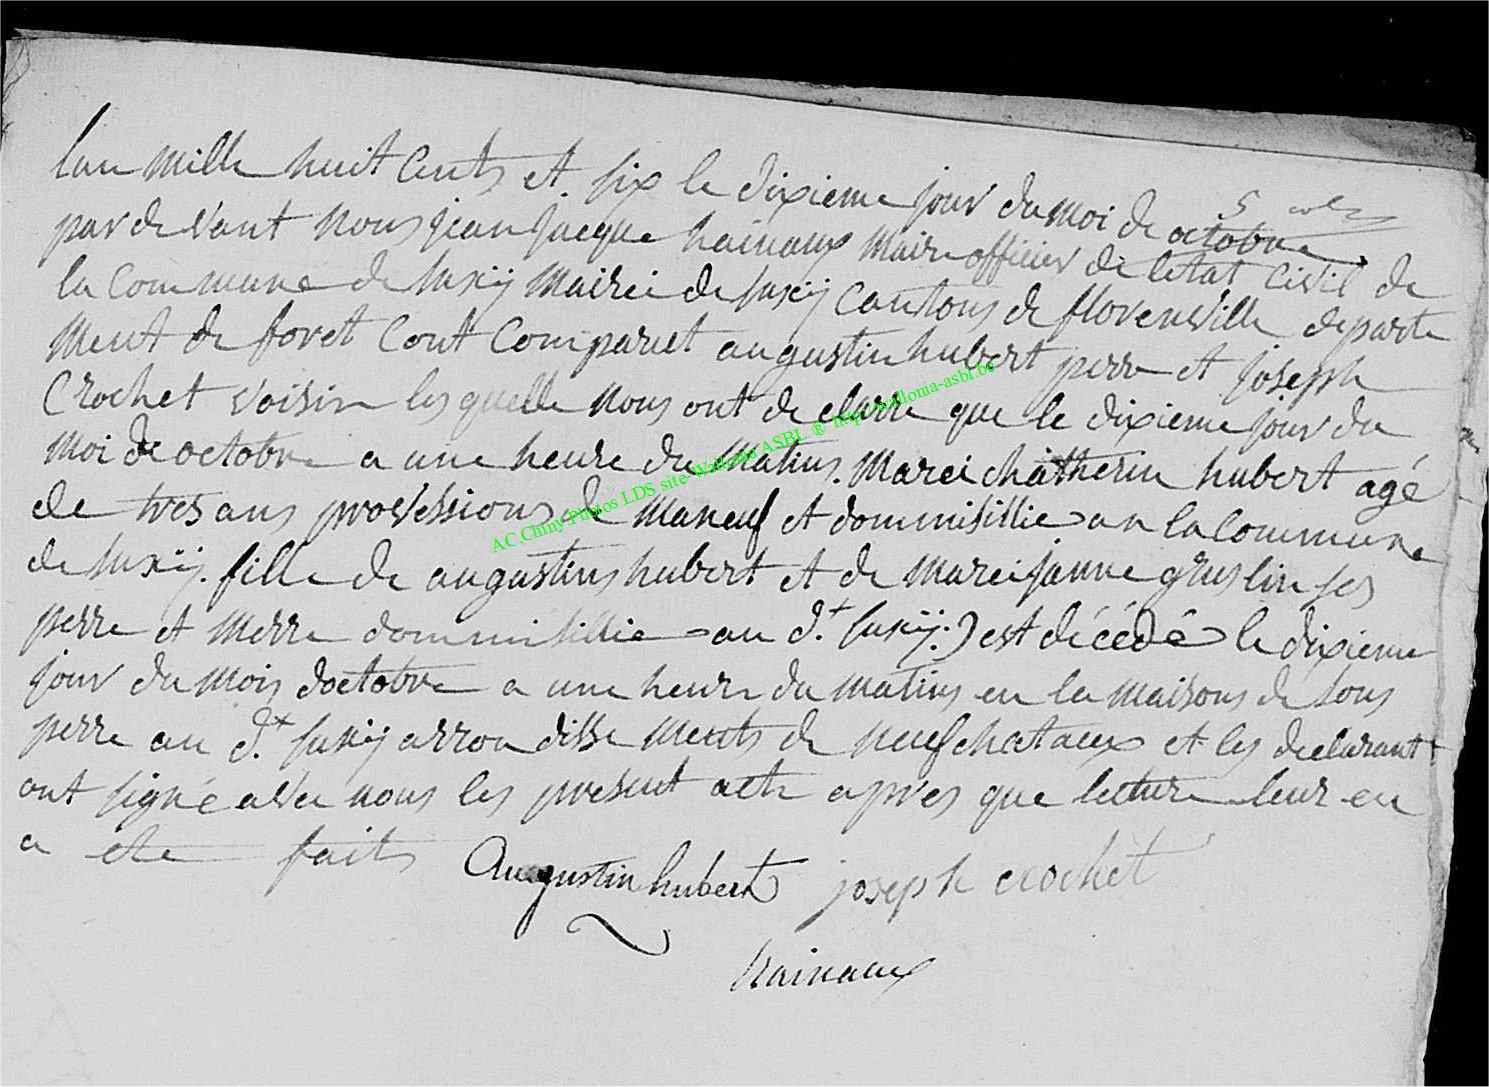 lan mille huit Cents et six le dixieme jour du moi de octobre
par devant nous jean jacque hainaux maire officier de letat Civil de
la Commune de Suxÿ Mairie de Suxÿ Cantons de florenville departe
ment de foret Cont Comparut augustin hubert perre et joseph
Crochet voisin les quelle nous ont de clarre que le dixieme jour du
moi de octobre a une heure du matins. Marei chatherin hubert agé
de tres ans provessions de et dommisillie an la Commune
de Suxÿ. fille de augustins hubert et de marei janne ses
perre et merre dommisillie au d.t Suxÿ.) est décédé le dixieme
jour du mois doctobre a une heure du matins en la maisons de sons
perre au d.t Suxÿ arron disse ments de neufchataux et les declarant
ont signé avec nous les present acte apres que lecture leur en
a ete faits
Augustin hubert joseph crochet
hainaux
AC.Chiny Photos LDS site Wallonia ASBL ® http://wallonia-asbl.be